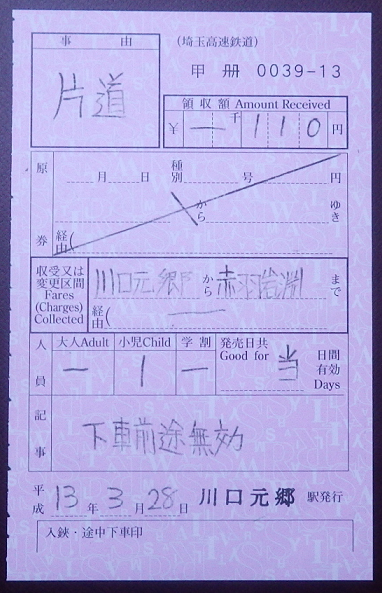 事由
（埼玉高速鉄道）
片道
甲 冊 0039-13
領収額 Amount Received
￥ 一 千 1 1 0 円
原券
月 日 種別 号 円
から ゆき
経由(
収受又は変更区間 Fares (Charges) Collected
川口元郷 から 赤羽岩淵 まで
経由( 一
人員
大人Adult 小児Child 学割 発売日共 Good for 当 日間有効 Days
一 1 一
記事
下車前途無効
平成 13 年 3 月 28 日 川口元郷 駅発行
入鋏・途中下車印